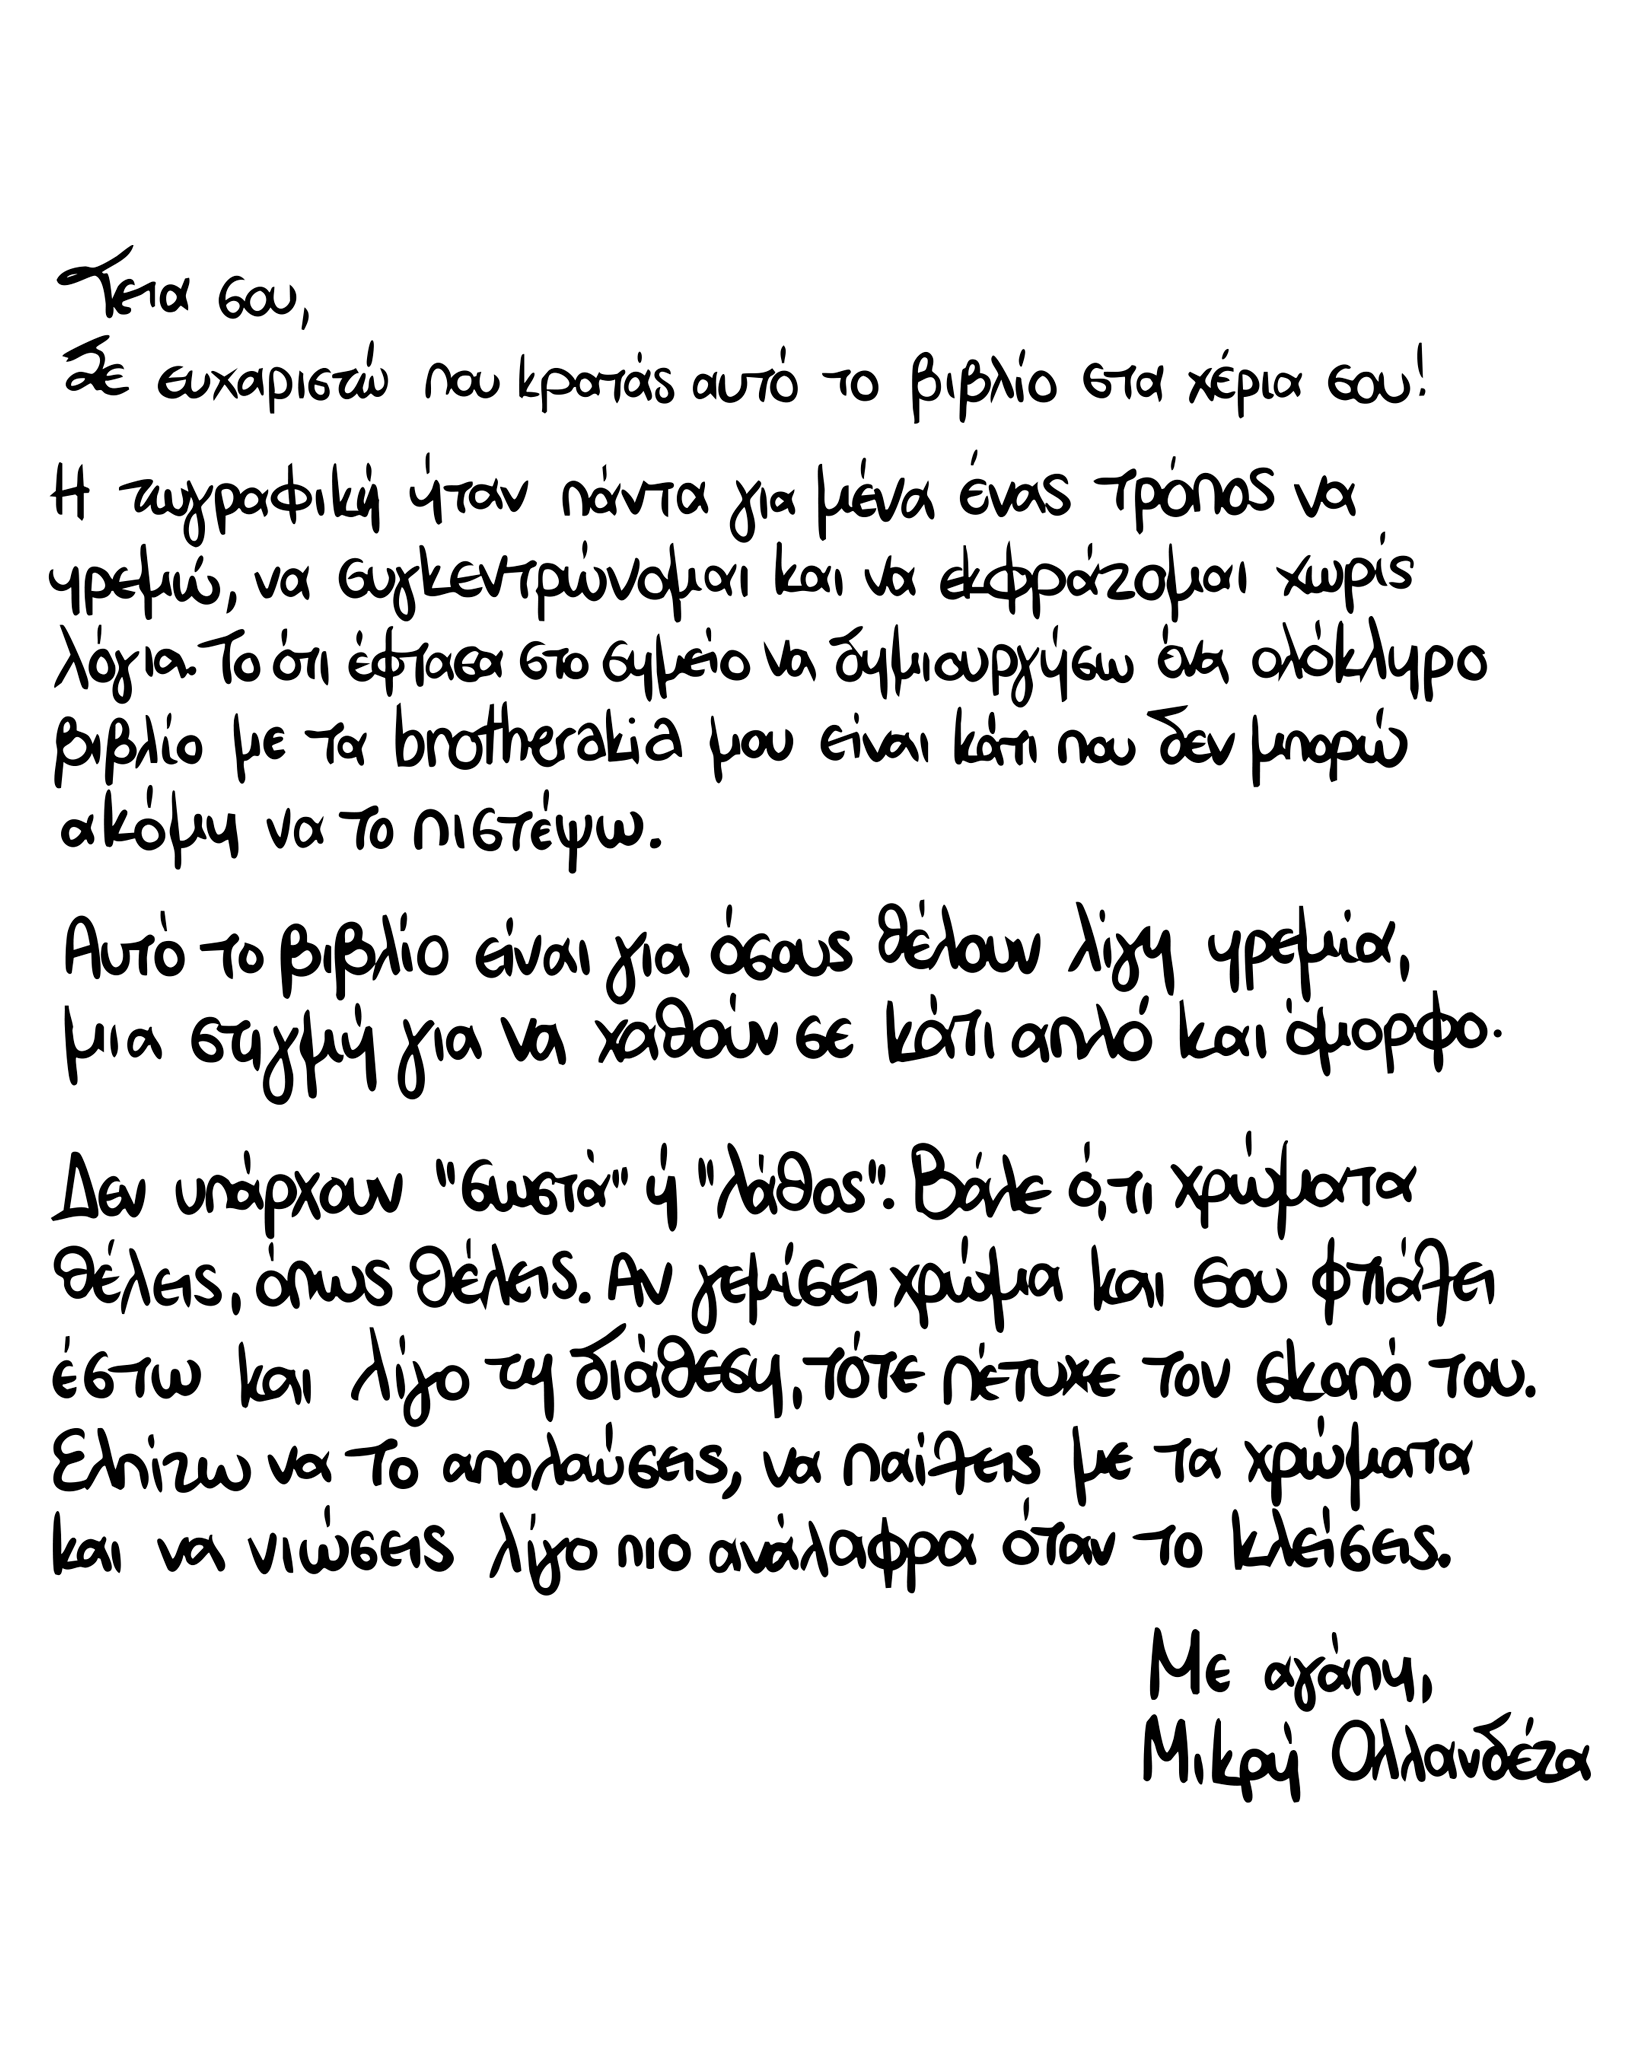 Γεια σου,
Σε ευχαριστώ που κρατάς αυτό το βιβλίο στα χέρια σου!
Η ζωγραφική ήταν πάντα για μένα ένας τρόπος να
ηρεμώ, να συγκεντρώνομαι και να εκφράζομαι χωρίς
λόγια. Το ότι έφτασα στο σημείο να δημιουργήσω ένα ολόκληρο
βιβλίο με τα brotherakia μου είναι κάτι που δεν μπορώ
ακόμη να το πιστέψω.
Αυτό το βιβλίο είναι για όσους θέλουν λίγη ηρεμία,
μια στιγμή για να χαθούν σε κάτι απλό και όμορφο.
Δεν υπάρχουν "σωστά" ή "λάθος". Βάλε ό,τι χρώματα
θέλεις, όπως θέλεις. Αν γεμίσει χρώμα και σου φτιάξει
έστω και λίγο τη διάθεση, τότε πέτυχε τον σκοπό του.
Ελπίζω να το απολαύσεις, να παίξεις με τα χρώματα
και να νιώσεις λίγο πιο ανάλαφρα όταν το κλείσεις.
Με αγάπη,
Μικρή Ολλανδέζα